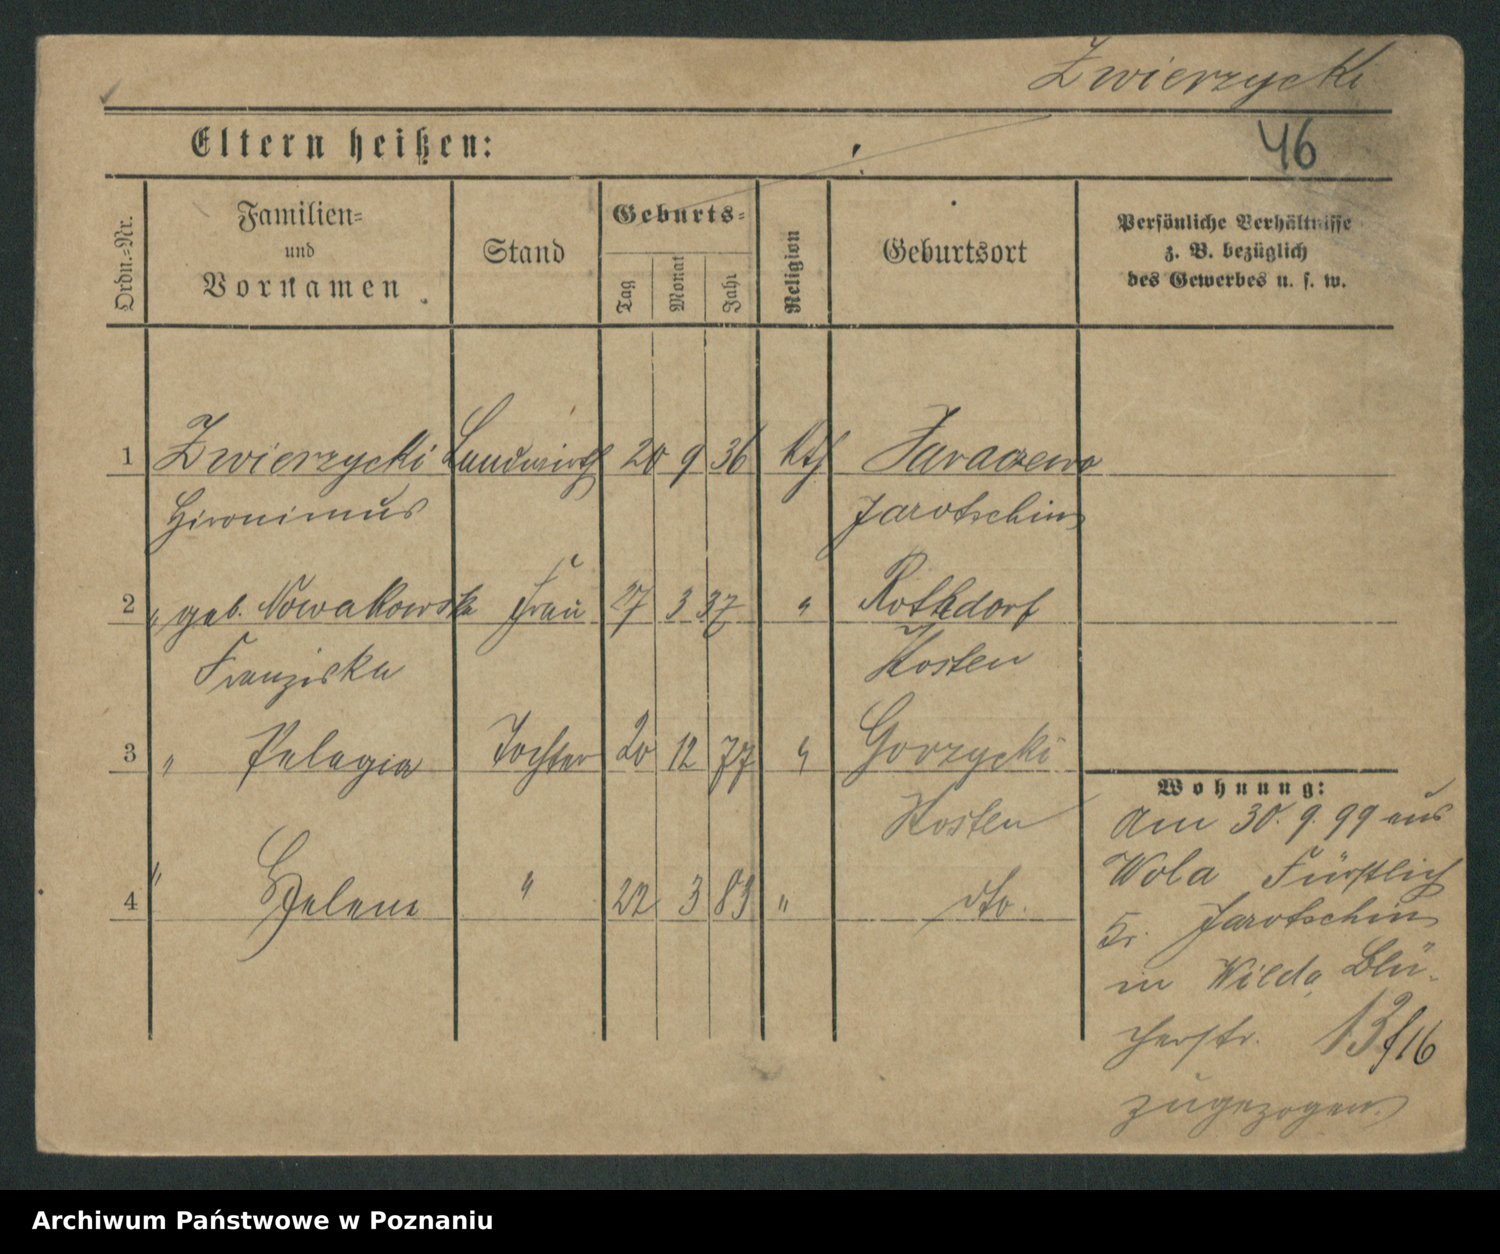 Zwierzycki
Eltern heißen:
46
Ordn.-Nr.
Familien-
und
Vornamen
Stand
Geburts-
Tag
Monat
Jahr
Religion
Geburtsort
Persönliche Verhältnisse
z. B. bezüglich
des Gewerbes u. s. w.
1 Zwierzycki Landwirth 20 9 36 Kth Jaraczewo
Hironimus Jarotschin
2 " geb. Nowakowska Frau 27 3 37 " Rothdorf
Franziska Kosten
3 " Pelagia Tochter 20 12 77 " Gorzycki
Kosten
4 " Helene " 22 3 83 " dto.
Wohnung:
Am 30. 9. 99 aus
Wola Fürstlich
Kr. Jarotschin
in Wilda Blü-
cherstr. 13/16
zugezogen.
Archiwum Państwowe w Poznaniu